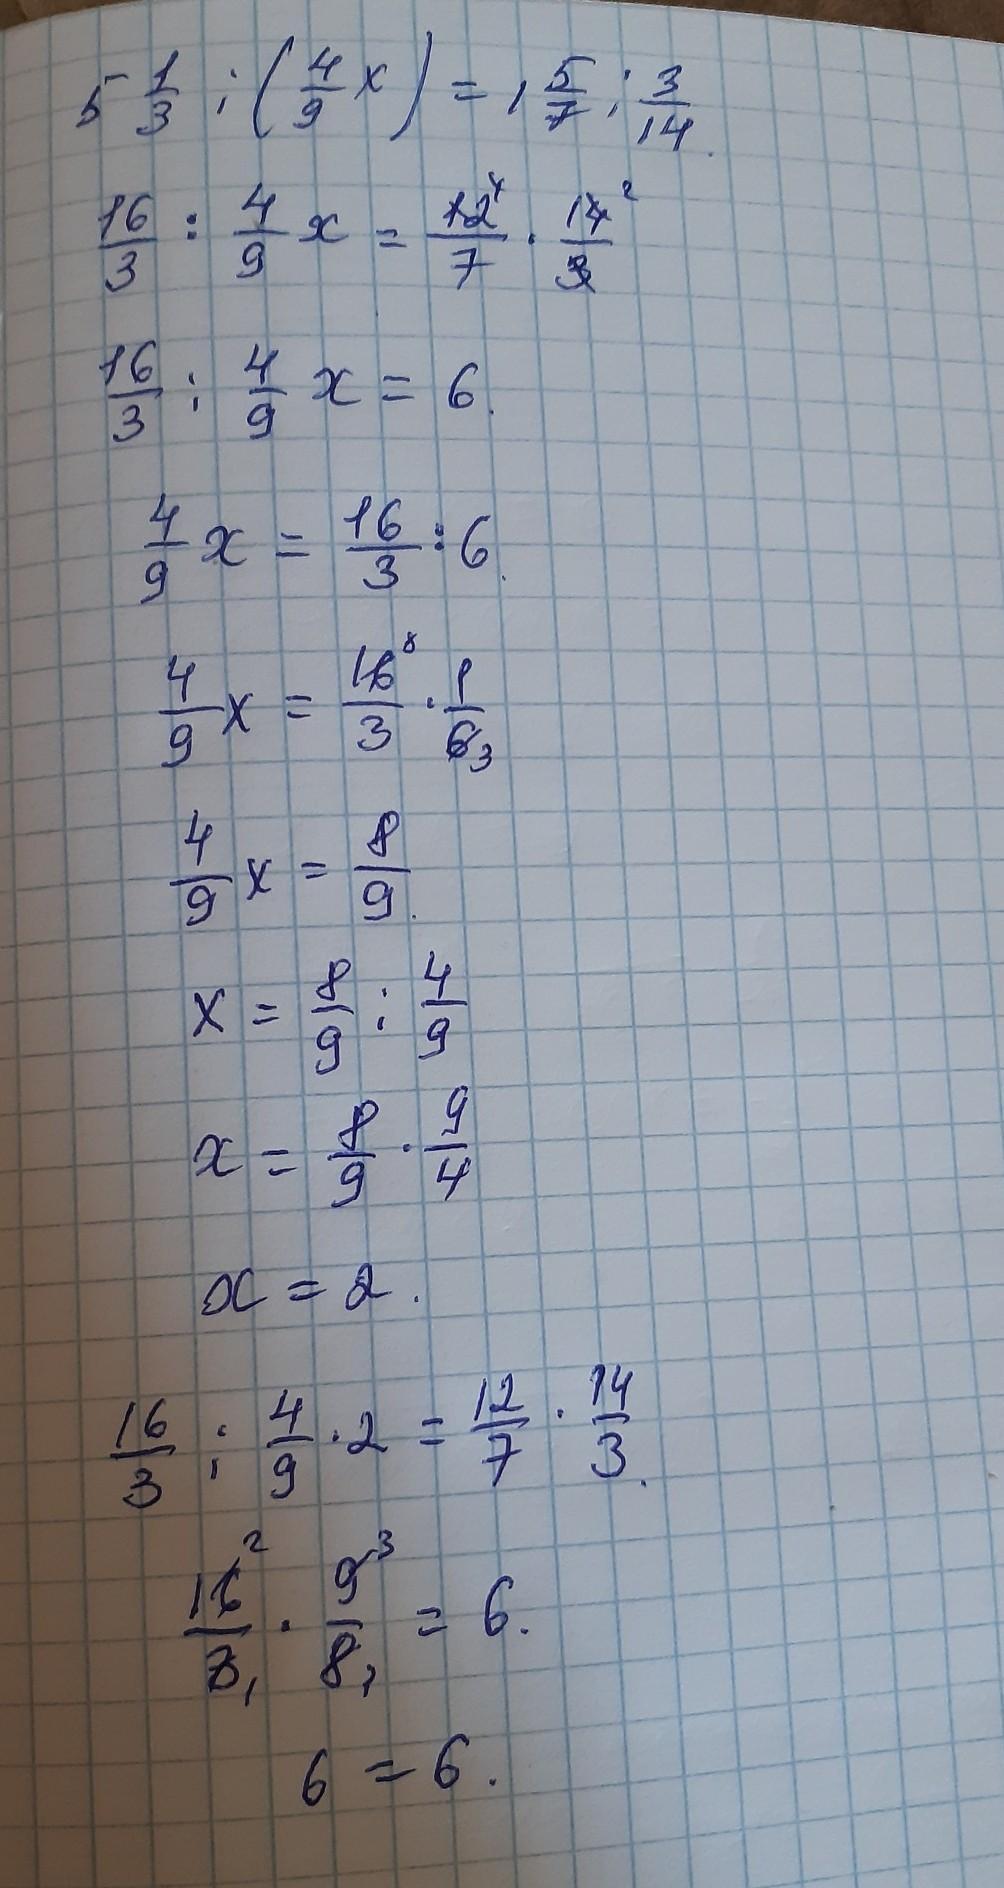 5 1/3 : (4/9 x) = 1 5/7 : 3/14.
16/3 : 4/9 x = 12⁴/7 · 14²/3
16/3 : 4/9 x = 6.
4/9 x = 16/3 : 6.
4/9 x = 16⁸/3 · 1/6₃
4/9 x = 8/9.
x = 8/9 : 4/9
x = 8/9 · 9/4
x = 2.
16/3 : 4/9 · 2 = 12/7 · 14/3.
16²/3₁ · 9³/8₁ = 6.
6 = 6.